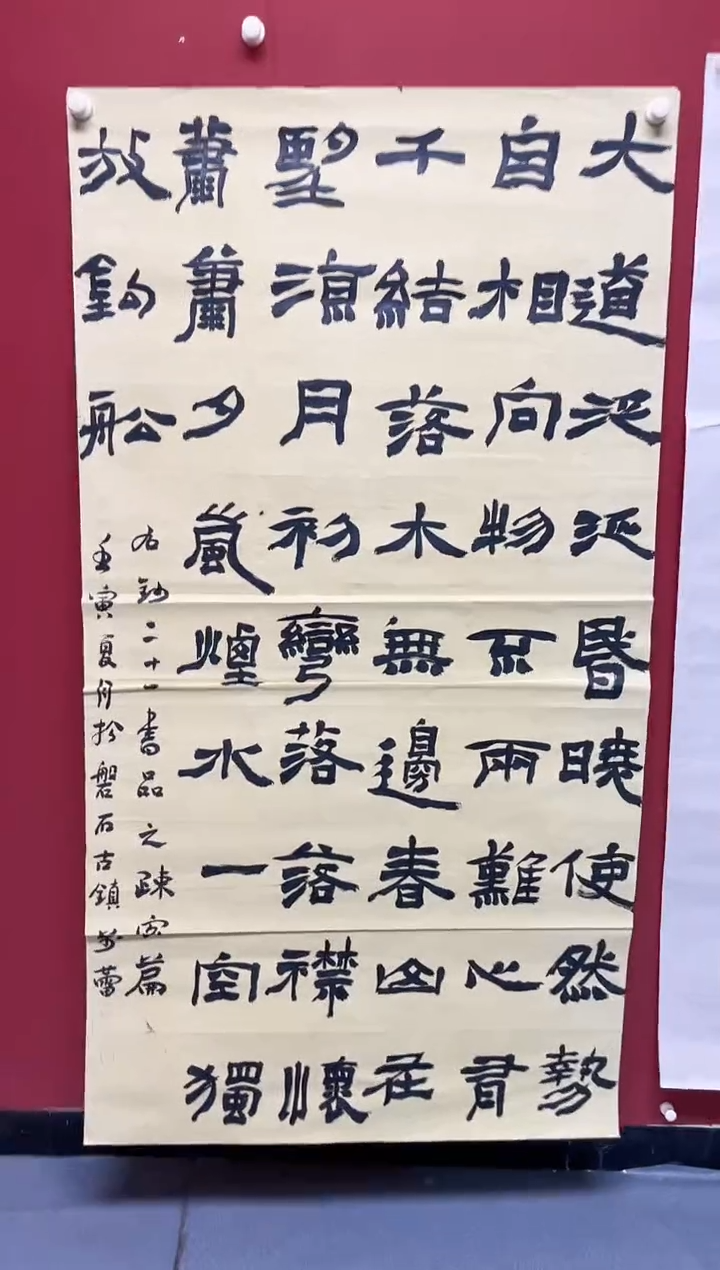 大道泛泛昏曉使然勢
自相向物不兩難心有
千結落木無邊春山在
望涼月初彎落落襟懷
蕭蕭夕嵐煙水一空獨
放釣船
右鈔二十一書品之疎密篇
壬寅夏於磐石古鎮蕾